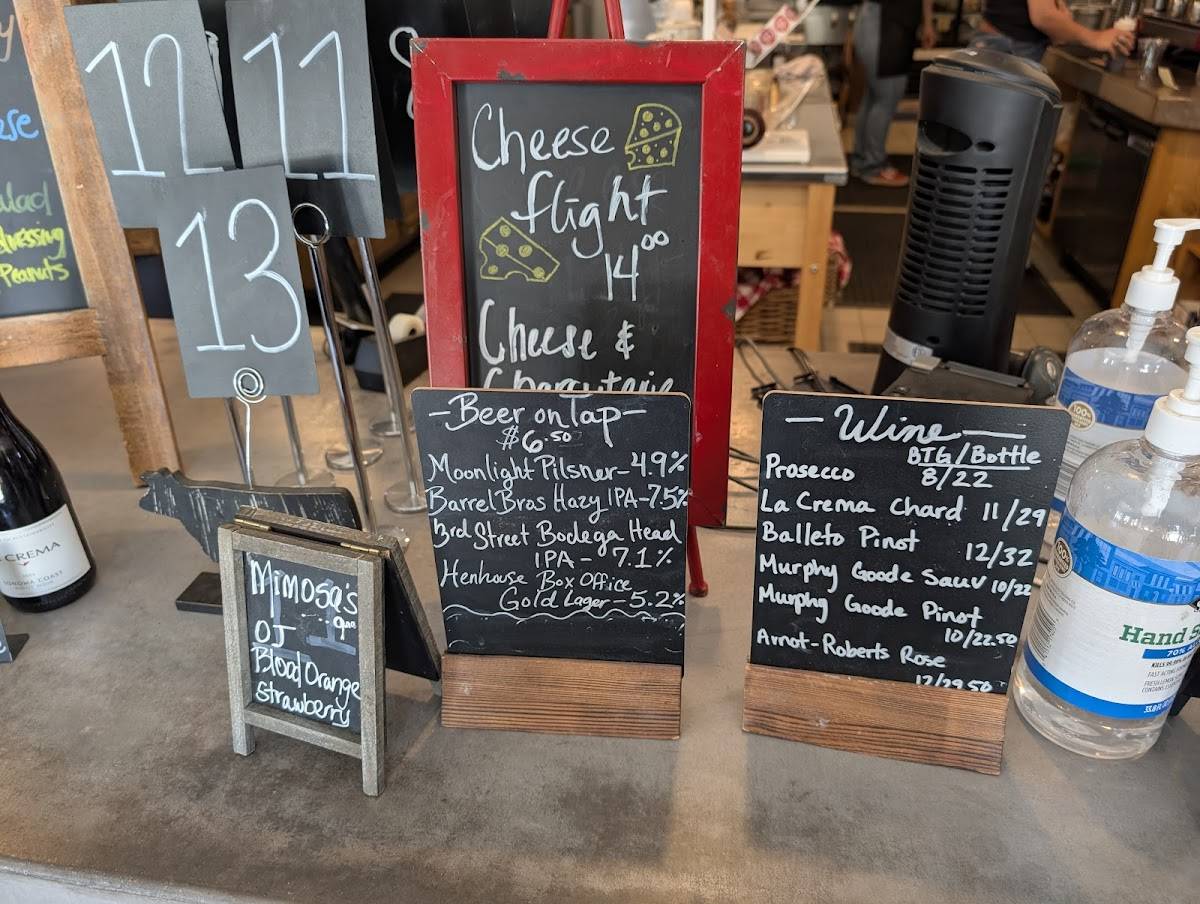 12
11
13
ese
alad
dressing
Peanuts
Cheese
flight
14 00
Cheese &
Charcuterie
- Beer on Tap -
$6.50
Moonlight Pilsner - 4.9%
Barrel Bros Hazy IPA - 7.5%
3rd Street Bodega Head
IPA - 7.1%
Henhouse Box Office
Gold Lager - 5.2%
- Wine -
BTG/Bottle
Prosecco 8/22
La Crema Chard 11/29
Balleto Pinot 12/32
Murphy Goode Sauv 10/22
Murphy Goode Pinot
10/22.50
Arnot-Roberts Rose
12/29.50
Mimosa's
9.00
OJ
Blood Orange
strawberry
CREMA
SONOMA COAST
100%
100%
Hand S
70% A
KILLS 99.99%
33.8 fl